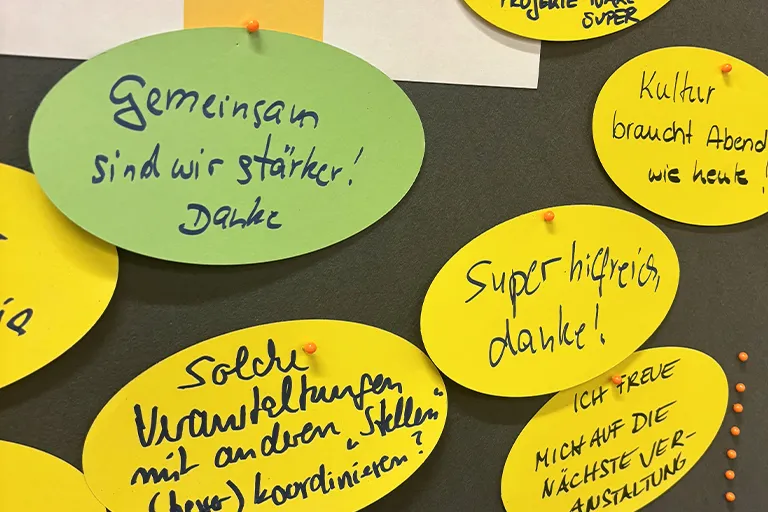 PROJEKTE WÄRE
SUPER
Kultur
braucht Abend
wie heute!
Gemeinsam
sind wir stärker!
Danke
Super hilfreich,
danke!
Solche
Veranstaltungen
mit anderen "Stellen"
(besser) koordinieren?
ICH FREUE
MICH AUF DIE
NÄCHSTE VER-
ANSTALTUNG